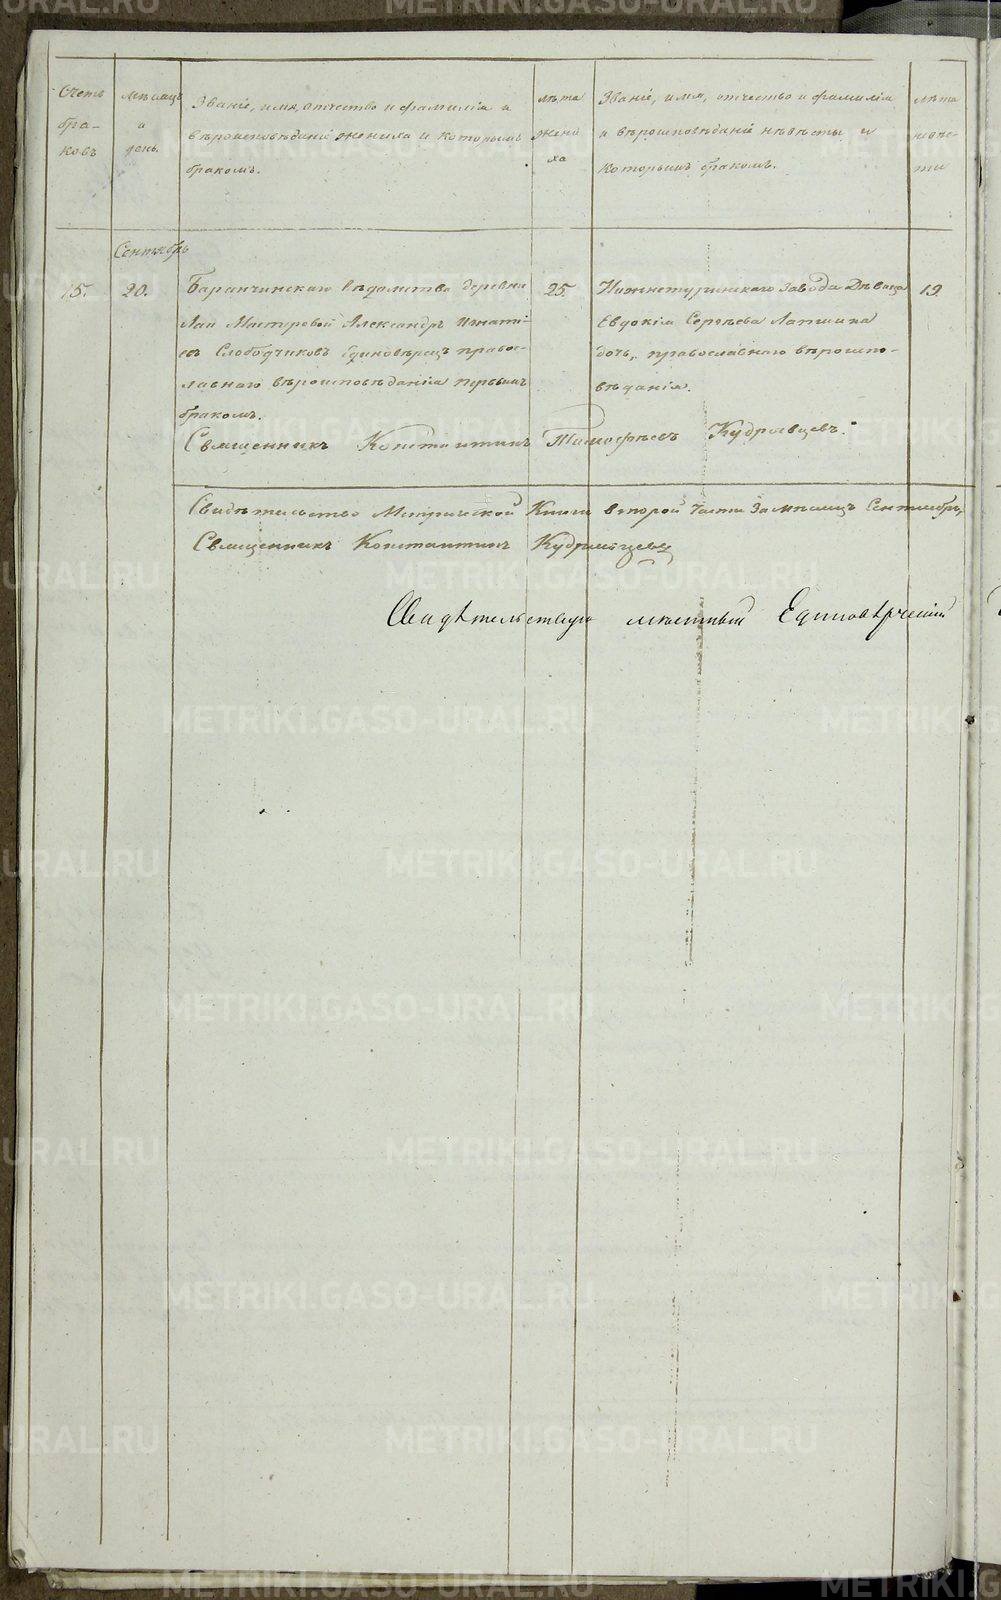 Счетъ бра- ковъ
мѣсяцъ и день.
Званіе, имя, отчество и фамилія и
вѣроисповѣданіе жениха и которымъ
бракомъ.
лѣта жени ха
Званіе, имя, отчество и фамилія
и вѣроисповѣданіе невѣсты и
которымъ бракомъ.
лѣта невѣ- сты
Сентябрь
15.
20.
Баранчинскаго вѣдомства деревни
Лаи Мастеровой Александръ Игнаті-
евъ Слободчиковъ Единовѣрецъ правос-
лавнаго вѣроисповѣданія первымъ
бракомъ.
25.
Нижнетуринскаго завода Дѣвица
Евдокія Сергѣева Лапшина
дочь, православнаго вѣроиспо-
вѣданія.
19.
Священникъ Константинъ Тимофѣевъ Кудрявцевъ.
Свидѣтельство Метрической Книги второй части за мѣсяцъ Сентябрь,
Священникъ Константинъ Кудрявцевъ
Свидѣтельствую мѣстный Единовѣрческій
METRIKI.GASO-URAL.RU